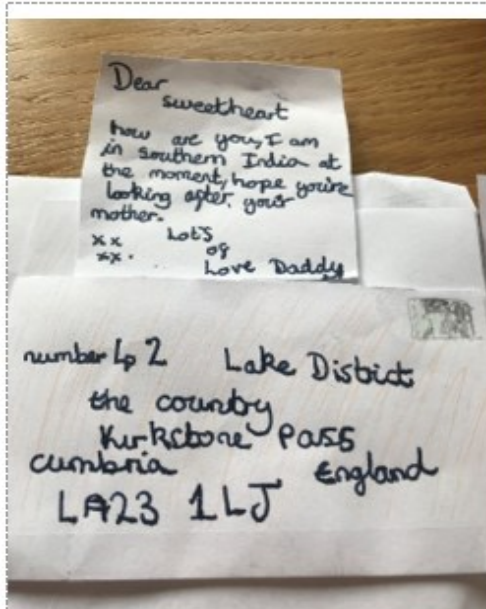 Dear
sweetheart
how are you, I am
in southern India at
the moment, hope you're
looking after your
mother.
xx Lots
xx. of
Love Daddy
number 42 Lake District
the country
Kirkstone Pass
cumbria England
LA23 1LJ